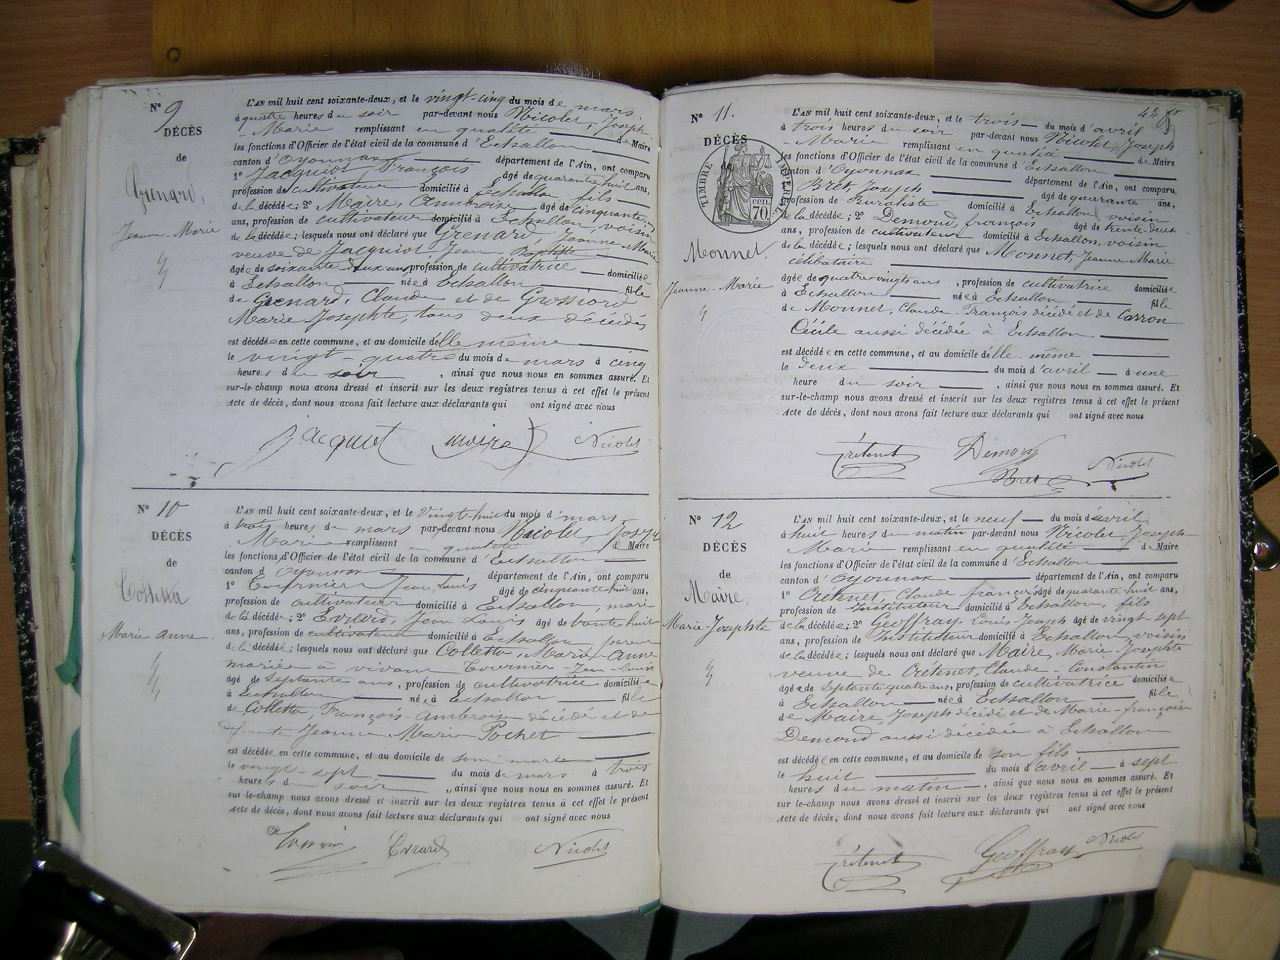 N° 9
DÉCÈS
de
Grenard,
Jeanne-Marie
L'AN mil huit cent soixante-deux, et le vingt-cinq du mois de mars
à quatre heures du soir par-devant nous Nicolet, Joseph
Marie remplissant en qualité de Maire
les fonctions d'Officier de l'état civil de la commune d'Echallon
canton d'Oyonnax département de l'Ain, ont comparu
1° Jacquiot, François âgé de quarante huit ans,
profession de cultivateur domicilié à Echallon, fils
de la décédée; 2° Maire, Ambroise âgé de cinquante
ans, profession de cultivateur domicilié à Echallon, voisin
de la décédée; lesquels nous ont déclaré que Grenard, Jeanne-Marie
veuve de Jacquiot Jean Baptiste
âgée de soixante deux ans profession de cultivatrice domiciliée
à Echallon née à Echallon fille
de Grenard, Claude et de Grossiord
Marie Josephte, tous deux décédés
est décédée en cette commune, et au domicile d'elle même
le vingt-quatre du mois de mars à cinq
heures du soir, ainsi que nous nous en sommes assuré. Et
sur-le-champ nous avons dressé et inscrit sur les deux registres tenus à cet effet le présent
acte de décès, dont nous avons fait lecture aux déclarants qui ont signé avec nous
Jacquiot Maire Nicolet
N° 10
DÉCÈS
de
Colletta
Marie anne
L'AN mil huit cent soixante-deux, et le vingt-huit du mois d mars
à heures du mars par-devant nous Nicolet, Joseph
Marie remplissant en qualité de Maire
les fonctions d'Officier de l'état civil de la commune d'Echallon
canton d'Oyonnax département de l'Ain, ont comparu
1° Tournier Jean Louis âgé de cinquante huit ans,
profession de cultivateur domicilié à Echallon, mari
de la décédée; 2° Evrard, Jean Louis âgé de huit
ans, profession de cultivateur domicilié à Echallon
de la décédée; lesquels nous ont déclaré que Colletta, Marie-Anne
mariée à vivant Tournier Jean-Louis
âgée de septante ans, profession de cultivatrice domiciliée
à Echallon née à Echallon fille
de Colletta François-Ambroise décédé et de
Jeanne Marie Pochet
est décédée en cette commune, et au domicile de son mari
le vingt-sept du mois de mars à trois
heures du soir, ainsi que nous nous en sommes assuré. Et
sur-le-champ nous avons dressé et inscrit sur les deux registres tenus à cet effet le présent
acte de décès, dont nous avons fait lecture aux déclarants qui ont signé avec nous
Evrard Nicolet
N° 11.
DÉCÈS
TIMBRE IMPÉRIAL
70 cen.
Monnet.
Jeanne-Marie
L'AN mil huit cent soixante-deux, et le trois du mois d'avril
à trois heures du soir par-devant nous Nicolet, Joseph
Marie remplissant en qualité de Maire
les fonctions d'Officier de l'état civil de la commune d'Echallon
canton d'Oyonnax département de l'Ain, ont comparu
Bret, Joseph âgé de quarante ans,
profession de Buraliste domicilié à Echallon, voisin
de la décédée; 2° Demond, françois âgé de trente-deux
ans, profession de cultivateur domicilié à Echallon, voisin
de la décédée; lesquels nous ont déclaré que Monnet, Jeanne Marie
célibataire
âgée de quatre-vingts ans, profession de cultivatrice domiciliée
à Echallon née à Echallon fille
de Monnet, Claude-François décédé et de Carron
Cécile aussi décédée à Echallon
est décédée en cette commune, et au domicile d'elle même
le deux du mois d'avril à une
heure du soir, ainsi que nous nous en sommes assuré. Et
sur-le-champ nous avons dressé et inscrit sur les deux registres tenus à cet effet le présent
acte de décès, dont nous avons fait lecture aux déclarants qui ont signé avec nous
Crétenet Démond
Bret Nicolet
N° 12
DÉCÈS
de
Maire,
Marie-Josephte
L'AN mil huit cent soixante-deux, et le neuf du mois d'avril
à huit heures du matin par-devant nous Nicolet, Joseph
Marie remplissant en qualité de Maire
les fonctions d'Officier de l'état civil de la commune d'Echallon
canton d'Oyonnax département de l'Ain, ont comparu
1° Crétenet, Claude françois âgé de quarante huit ans,
profession de Instituteur domicilié à Echallon, fils
de la décédée; 2° Geoffray, Louis-Joseph âgé de vingt-sept
ans, profession de Instituteur domicilié à Echallon, voisin
de la décédée; lesquels nous ont déclaré que Maire, Marie-Josephte
veuve de Crétenet, Claude-Constantin
âgée de septante quatre ans, profession de cultivatrice domiciliée
à Echallon née à Echallon fille
de Maire, Joseph décédé et de Marie-françoise
Demond aussi décédée à Echallon
est décédée en cette commune, et au domicile de son fils
le huit du mois d'avril à sept
heures du matin, ainsi que nous nous en sommes assuré. Et
sur-le-champ nous avons dressé et inscrit sur les deux registres tenus à cet effet le présent
acte de décès, dont nous avons fait lecture aux déclarants qui ont signé avec nous
Crétenet Geoffray Nicolet